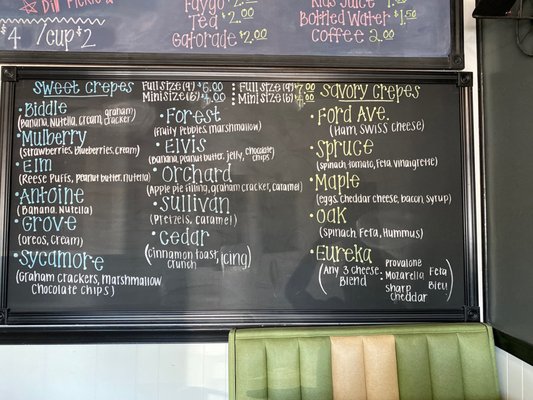 Dill Pickle
$4 /cup $2
Faygo $2.00
Tea $2.00
Gatorade $2.00
Kids Juice $1.
Bottled Water $1.50
Coffee 2.00
Sweet Crepes Full size (9") $6.00
Mini size (6") $4.00
Full size (9") $7.00 Savory Crepes
Mini size (6") $5.00
• Biddle
(Banana, Nutella, Cream, graham cracker)
• Mulberry
(Strawberries, Blueberries, Cream)
• Elm
(Reese Puffs, Peanut Butter, Nutella)
• Antoine
(Banana, Nutella)
• Grove
(Oreos, Cream)
• Sycamore
(Graham crackers, Marshmallow
Chocolate chips)
• Forest
(Fruity Pebbles, Marshmallow)
• Elvis
(Banana, peanut butter, jelly, chocolate chips)
• Orchard
(Apple pie filling, graham cracker, caramel)
• Sullivan
(Pretzels, Caramel)
• Cedar
(Cinnamon Toast Crunch, icing)
• Ford Ave.
(Ham, Swiss cheese)
• Spruce
(Spinach, tomato, Feta, vinaigrette)
• Maple
(eggs, cheddar cheese, bacon, syrup)
• Oak
(Spinach, Feta, Hummus)
• Eureka
(Any 3 cheese Blend :
Provalone
Mozarella
Sharp Cheddar
Feta
Bleu)